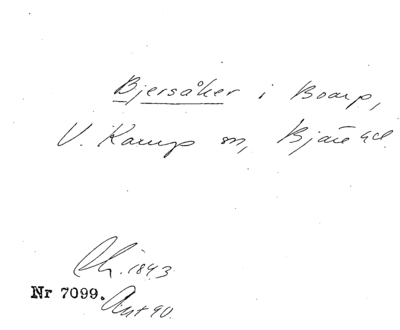 Bjersåker i Boarp,
V. Karup sn, Bjäre hd.
Ch. 1843
Nr 7099.
Ant 90.